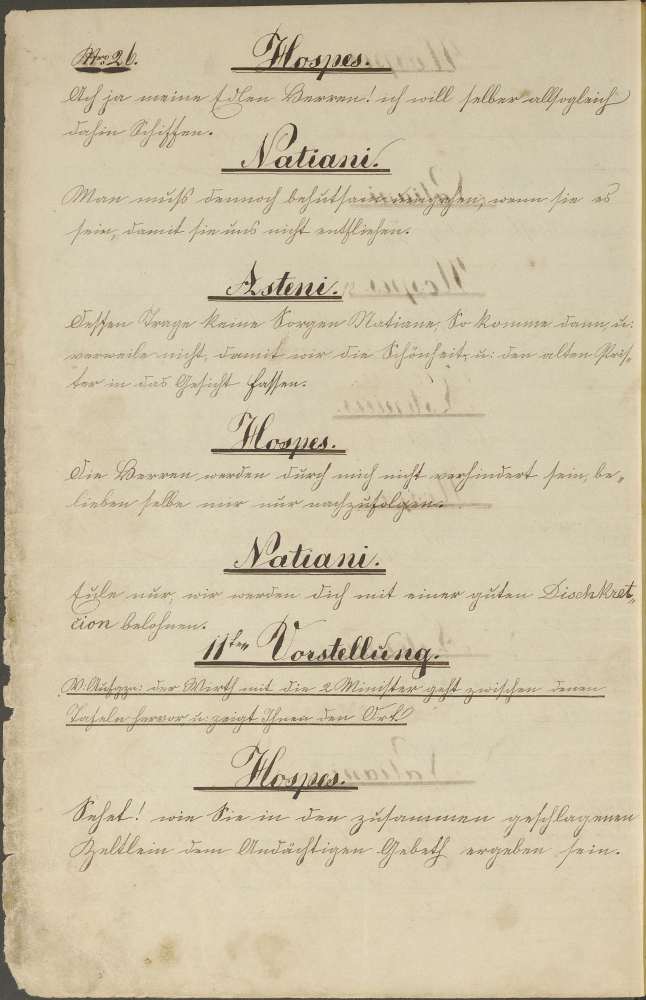 Nro 26.
Hospes.
Ach ja meine Edlen Herren! ich will selber allsogleich
dahin Schiffen.
Natiani.
Man muß dennoch behutsam umgehen, wenn sie es
sein, damit sie uns nicht entfliehen.
Asteni.
Dessen Trage keine Sorgen Natiane, So komme dann, u:
verweile nicht, damit wir die Schönheit, u: den alten Pries„
ter in das Gesicht fassen.
Hospes.
Die Herren werden durch mich nicht verhindert sein, be„
lieben selbe mir nur nachzufolgen.
Natiani.
Eule nur, wir werden dich mit einer guten Dischkret„
cion belohnen.
11ten Vorstellung.
V: Aufgzn: der Wirth mit die 2 Minister geht zwischen denen
Tafeln hervor u: zeigt Ihnen den Ort.
Hospes.
Sehet! wie Sie in den zusammen geschlagenen
Zeltlein dem Andächtigen Gebeth ergeben sein.